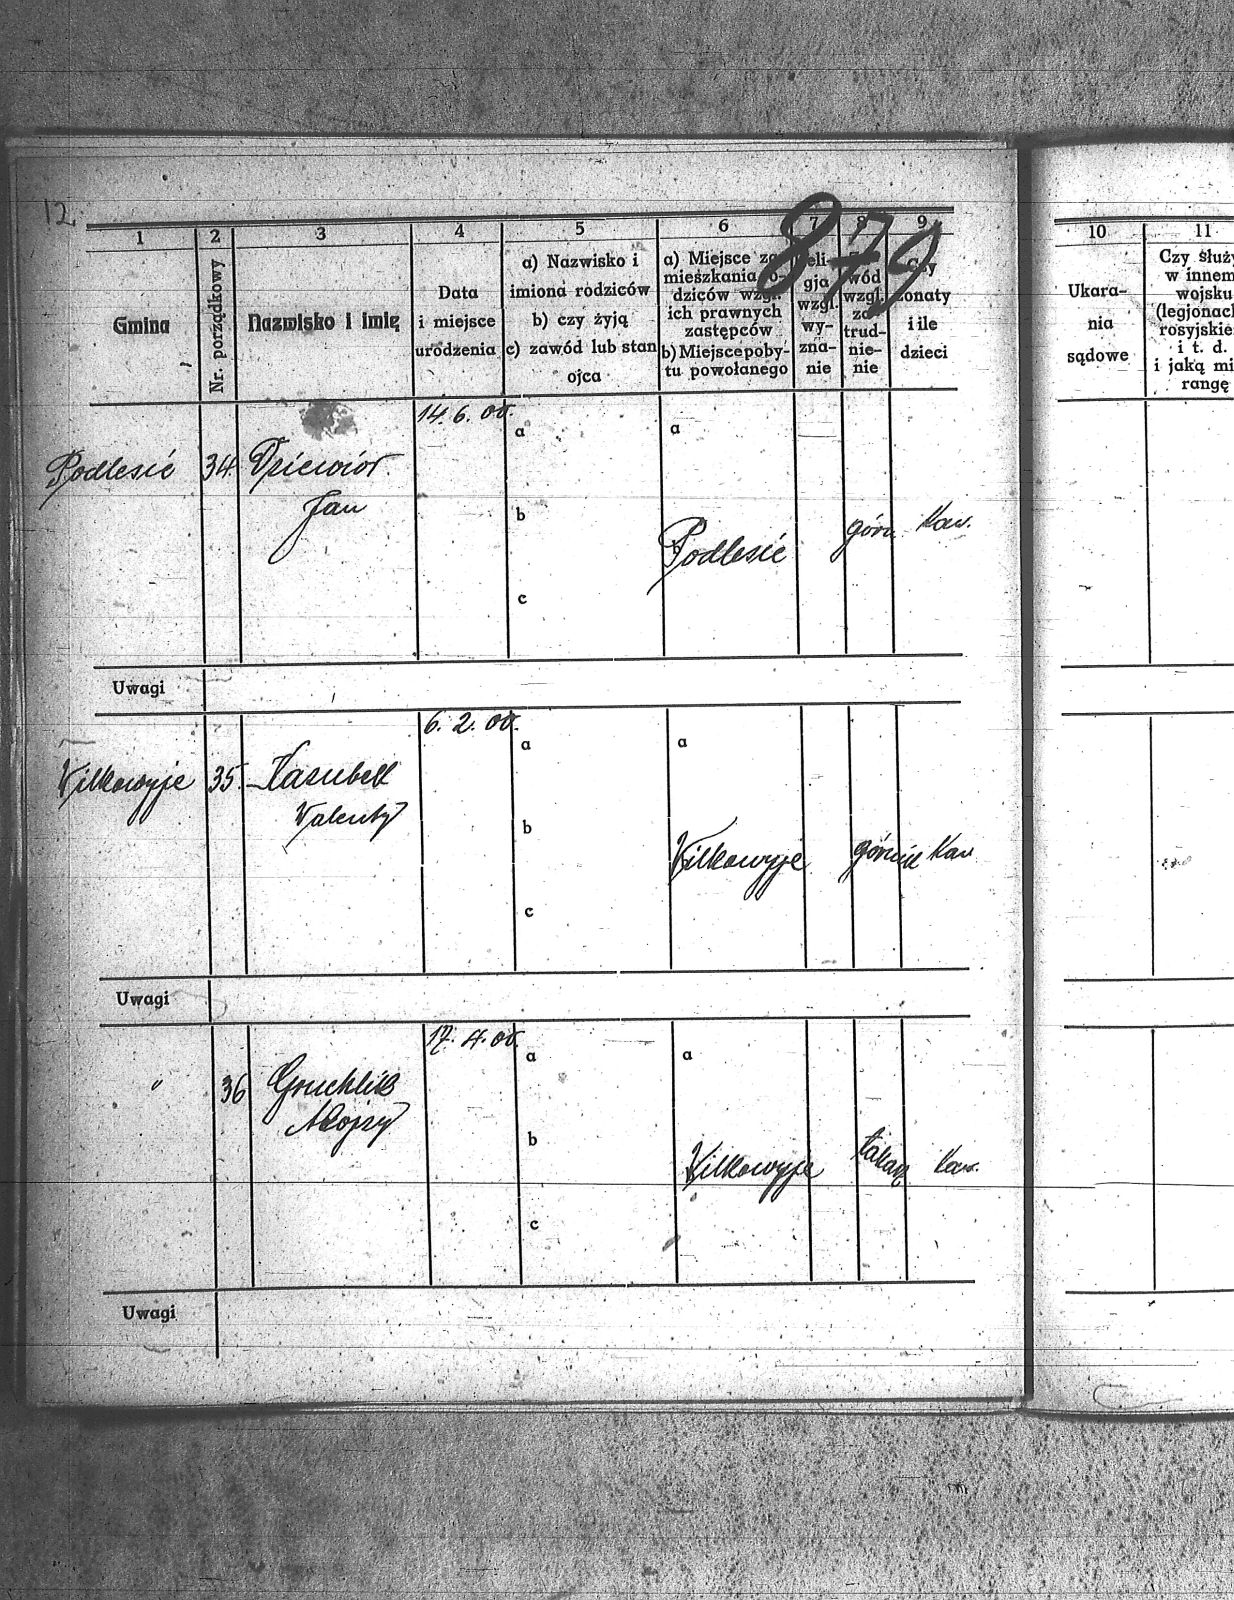 12.
879
1 2 3 4 5 6 7 8 9
Gmina
Nr. porządkowy
Nazwisko i imię
Data
i miejsce
urodzenia
a) Nazwisko i
imiona rodziców
b) czy żyją
c) zawód lub stan
ojca
a) Miejsce za-
mieszkania ro-
dziców wzgl.
ich prawnych
zastępców
b) Miejsce poby-
tu powołanego
Reli-
gja
wzgl.
wy-
zna-
nie
wód
wzgl.
za-
trud-
nie-
nie
Czy
żonaty
i ile
dzieci
14. 6. 00.
a a
Podlesie 34. Dziewior
Jan
b
Podlesie górn. Kaw.
c
Uwagi
6. 2. 00.
a a
Wilkowyje 35. Kasubek
Walenty
b
Wilkowyje górnik Kaw
c
Uwagi
17. 4. 00.
a a
" 36 Gruchlik
Alojzy
b
Wilkowyje Kaw.
c
Uwagi
10 11
Ukara-
nia
sądowe
Czy służy
w innem
wojsku
(legjonach
rosyjskie
i t. d.
i jaką mi
rangę